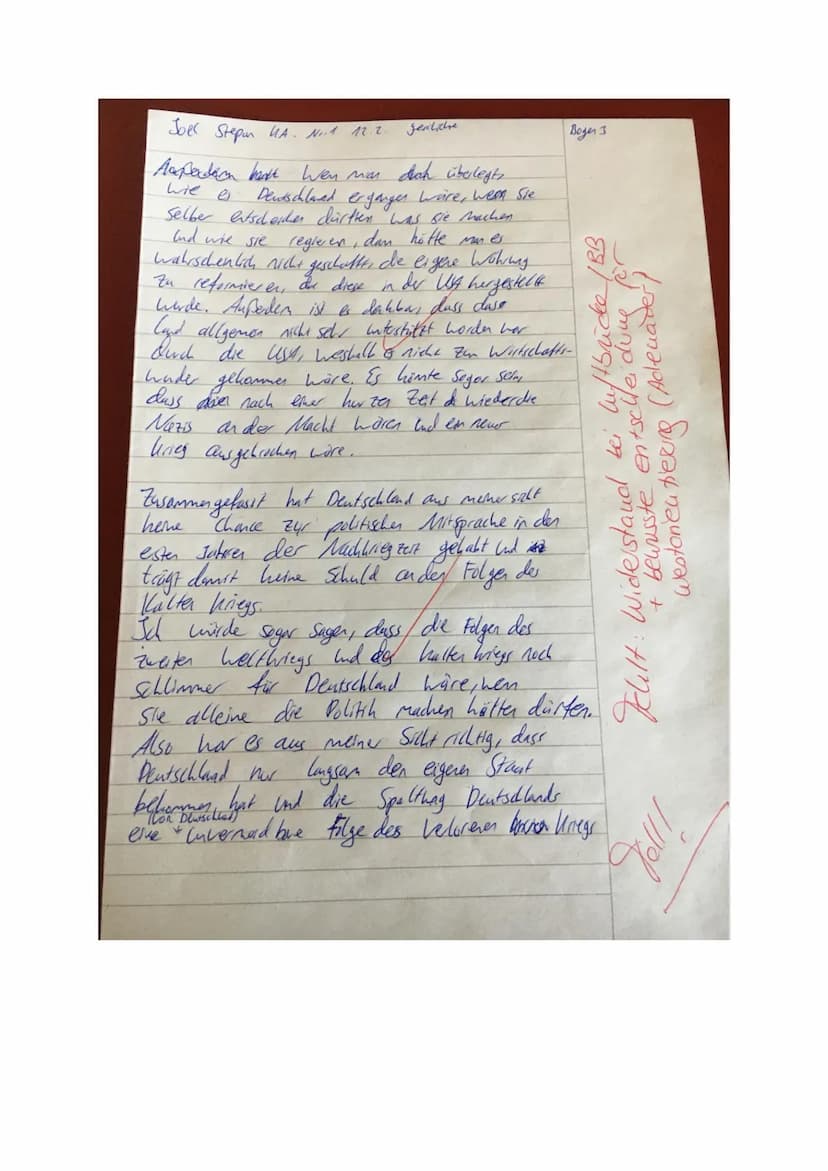 Joel Stepan KA. Nr. 1 12.2. Geschichte
Bogen 3
Außerdem Wen man doch überlegt,
wie es Deutschland ergangen wäre, wenn sie
selber entscheiden dürften was sie machen
und wie sie regieren, dan hätte man es
wahrscheinlich nicht geschafft, die eigene Währung
zu reformieren, da diese in der USA hergestellt
wurde. Außerdem ist es denkbar, dass das
Land allgemein nicht sehr unterstützt worden wer
durch die USA, weshalb es nicht zum Wirtschafts-
wunder gekommen wäre. Es könnte sogar sein,
dass nach einer kurzen Zeit wieder die
Nazis an der Macht wären und ein neuer
Krieg ausgebrochen wäre.
Zusammengefasst hat Deutschland aus meiner sicht
keine Chance zur politischen Mitsprache in den
ersten Jahren der Nachkriegzeit gehabt und
trägt damit keine Schuld an den Folgen des
Kalten Kriegs.
Ich würde sogar sagen, dass die Folgen des
zweiten Weltkriegs und des kalten kriegs noch
schlimmer für Deutschland wäre, wen
sie alleine die Politik machen hätten dürfen.
Also war es aus meiner Sicht richtig, dass
Deutschland nur langsam den eigenen Staat
bekommen hat und die Spaltung Deutschlands
(von Deutschland)
eine unvermeidbare Folge des verlorenen Kriegs
Fehlt: Widerstand bei Luftbrücke/BB
+ bewusste Entscheidung für
Westorientierung (Adenauer)
Toll!